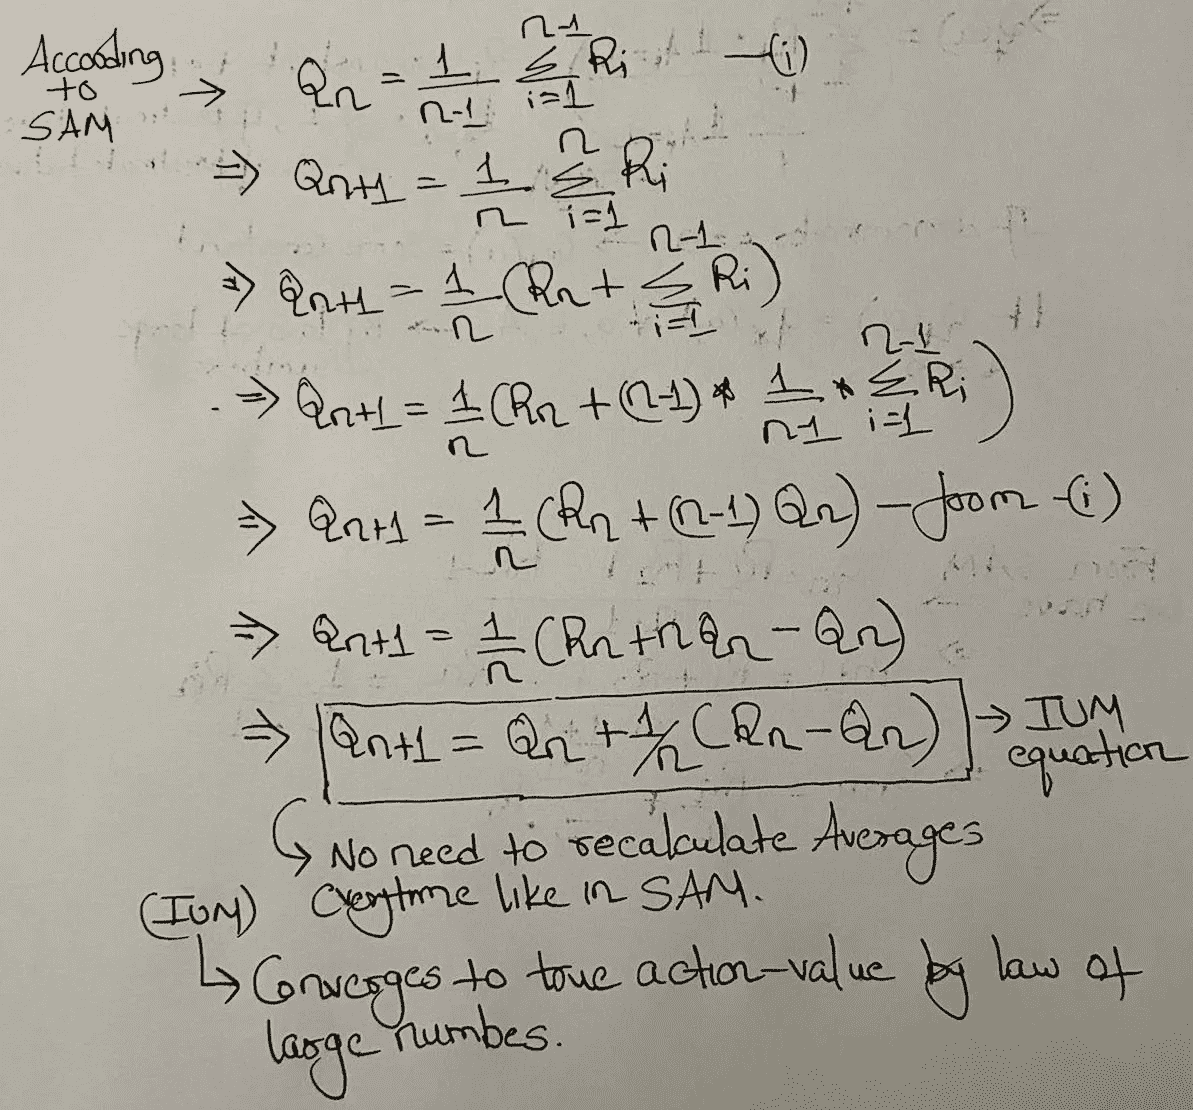 According to SAM → Qn = 1/(n-1) Σ_{i=1}^{n-1} Ri —(i)
⇒ Qn+1 = 1/n Σ_{i=1}^{n} Ri
⇒ Qn+1 = 1/n (Rn + Σ_{i=1}^{n-1} Ri)
⇒ Qn+1 = 1/n (Rn + (n-1) * 1/(n-1) * Σ_{i=1}^{n-1} Ri)
⇒ Qn+1 = 1/n (Rn + (n-1) Qn) – from -(i)
⇒ Qn+1 = 1/n (Rn + nQn - Qn)
⇒ Qn+1 = Qn + 1/n (Rn - Qn) → IUM equation
↳ No need to recalculate Averages
(IUM) everytime like in SAM.
↳ Converges to true action-value by law of
large numbes.